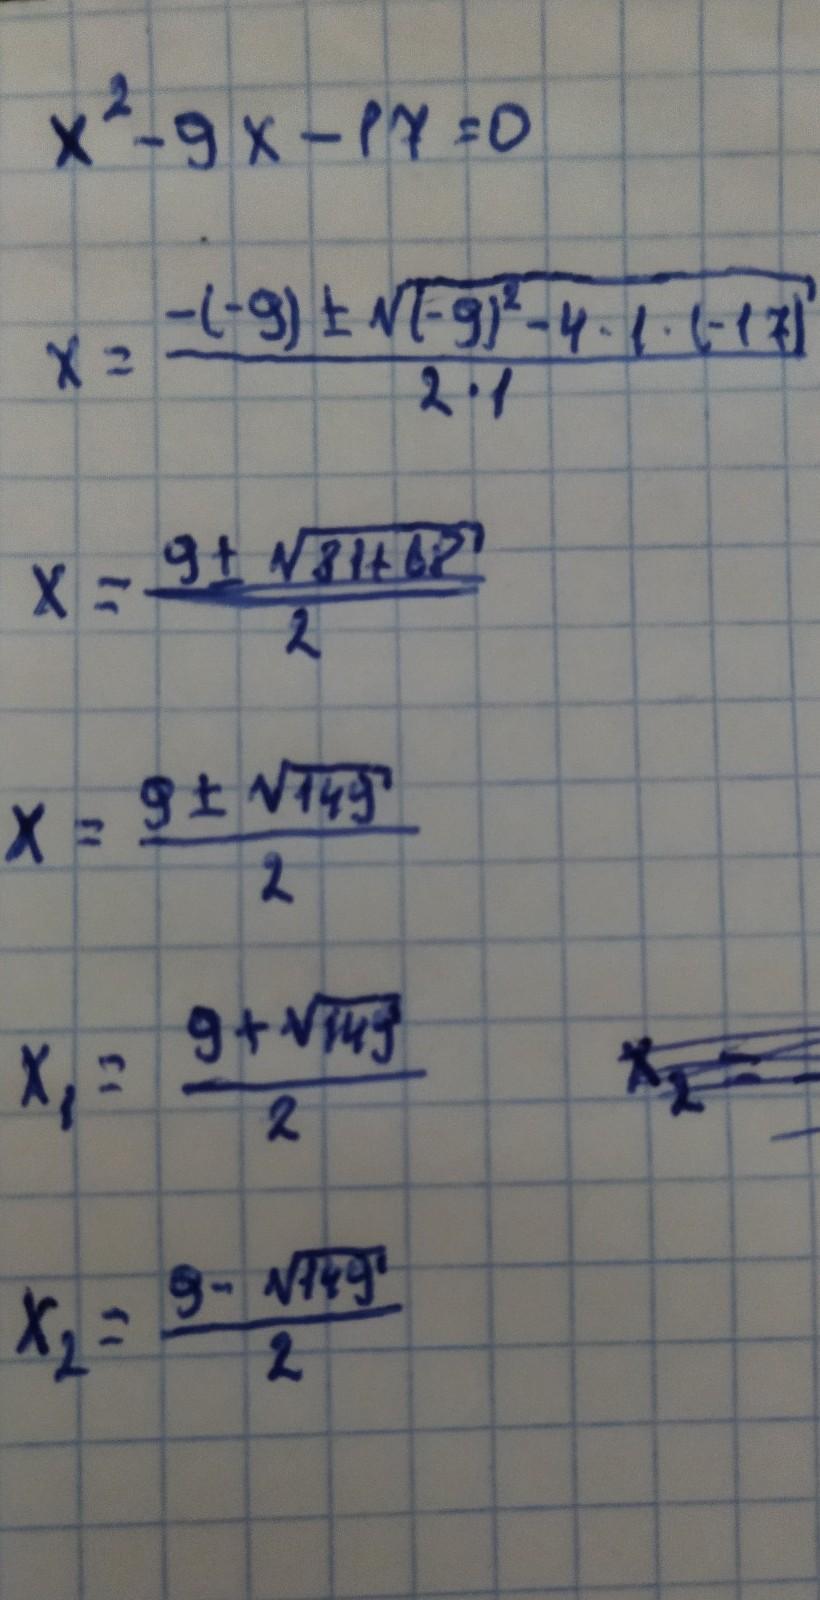 x² - 9x - 17 = 0
x = (-(-9) ± √((-9)² - 4 · 1 · (-17))) / (2 · 1)
x = (9 ± √(81 + 68)) / 2
x = (9 ± √149) / 2
x₁ = (9 + √149) / 2
x₂ =
x₂ = (9 - √149) / 2